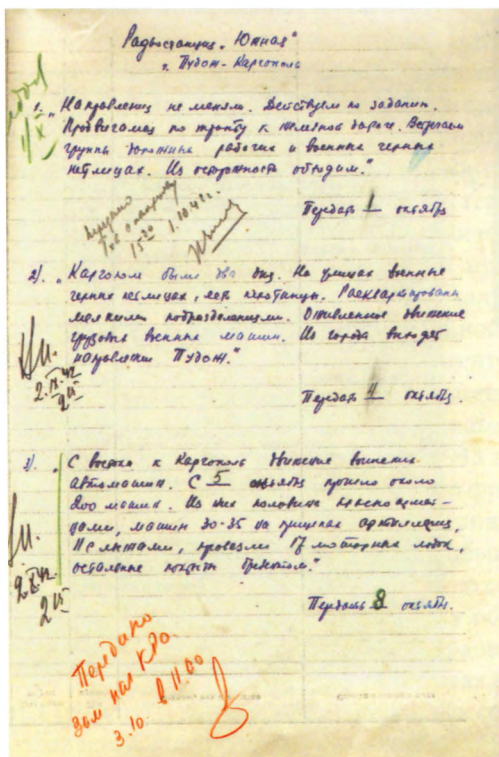 Радиостанция "Южная"
г. Пудож-Каргополь
1. "Направления не меняем. Действуем по заданию.
Продвигаемся по тракту к железной дороге. Встречаем
группы дорожных рабочих и военных черных
петлицах. Из осторожности обходим."
15 20 1.10.42 г.
Передать 1 октября
2). "Каргополе были два дня. На улицах военные
черных петлицах, есть пехотинцы. Расквартированы
мелкими подразделениями. Оживленное движение
грузовых военных машин. Из города выходят
направлении Пудож."
2.IX.42
2 15
Передать 4 октября.
3). "С востока к Каргополь движение воинских
автомашин. С 5 октября прошло около
200 машин. Из них половина красноармей-
цами, машин 30-35 на прицепах артиллерия,
провезли 17 моторных лодок,
остальные покрыты брезентом."
2 X 42
2 15
Передать 8 октября.
Передано
Зам нач КРО.
3.10. в 11.00